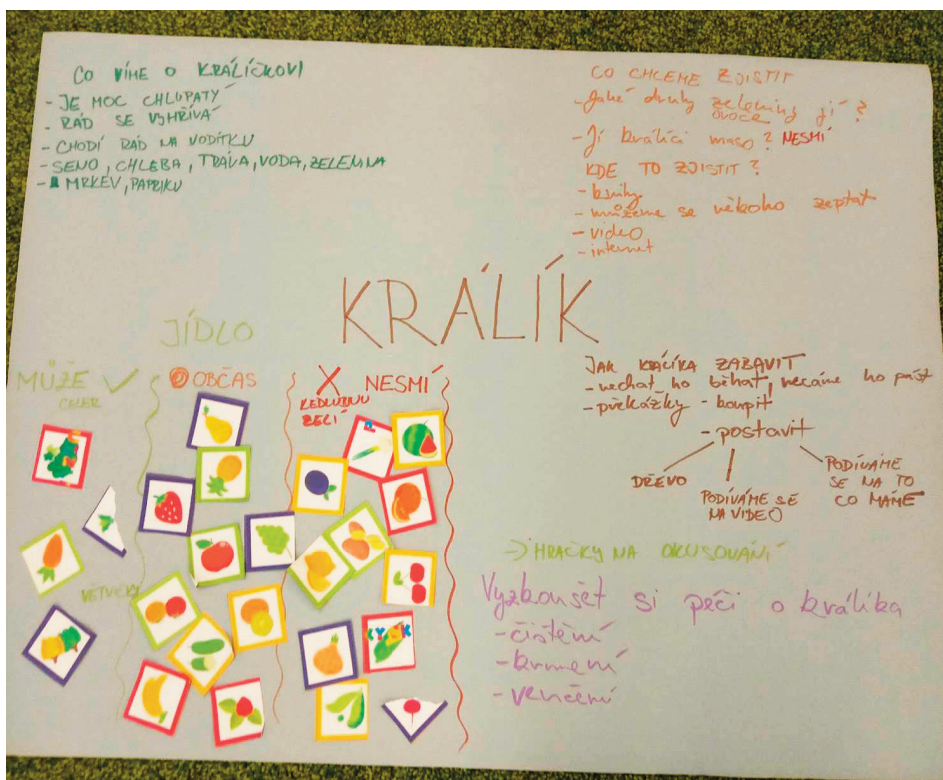 CO VÍME O KRÁLÍČKOVI
- JE MOC CHLUPATÝ
- RÁD SE VYHŘÍVÁ
- CHODÍ RÁD NA VODÍTKU
- SENO, CHLEBA, TRÁVA, VODA, ZELENINA
- MRKEV, PAPRIKU
CO CHCEME ZJISTIT
- Jaké druhy zeleniny jí ?
ovoce
- Jí králíci maso ? NESMÍ
KDE TO ZJISTIT ?
- knihy
- můžeme se někoho zeptat
- video
- internet
KRÁLÍK
JÍDLO
MŮŽE ✓
CELER
VĚTVIČKY
OBČAS
X NESMÍ
KEDLUBNU
ZELÍ
JAK KRÁLÍKA ZABAVIT
- nechat ho běhat, necháme ho pást
- překážky - koupit
- postavit
DŘEVO
PODÍVÁME SE
NA VIDEO
PODÍVÁME
SE NA TO
CO MÁME
→ HRAČKY NA OKUSOVÁNÍ
Vyzkoušet si péči o králíka
- čištění
- krmení
- venčení